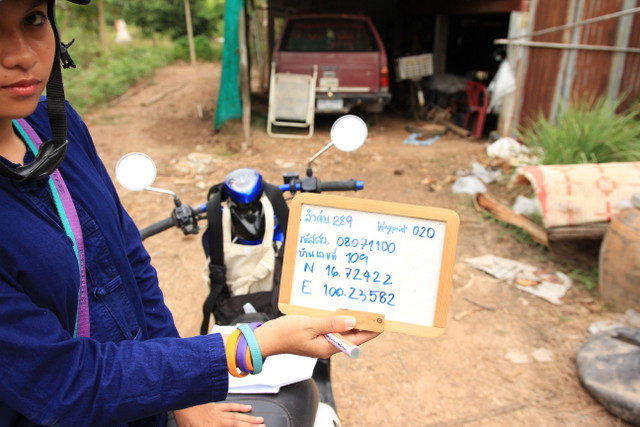 ลำดับ 289 Waypoint 020
รหัสสว. 08071100
บ้านเลขที่ 109
N 16.72422
E 100.23582